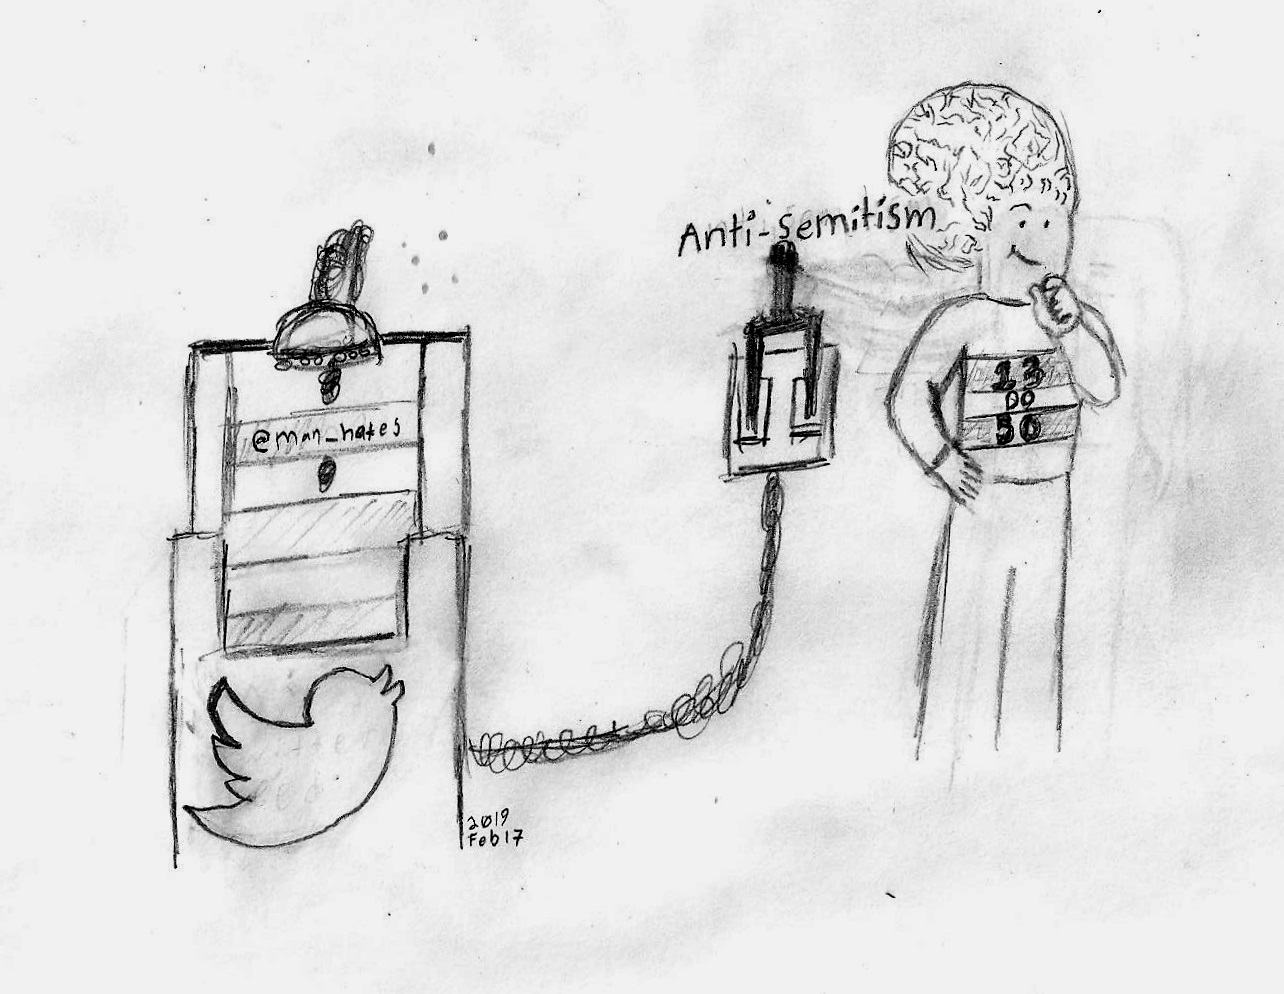 Anti-semitism
@man_hates
13
DO
50
2019
Feb 17